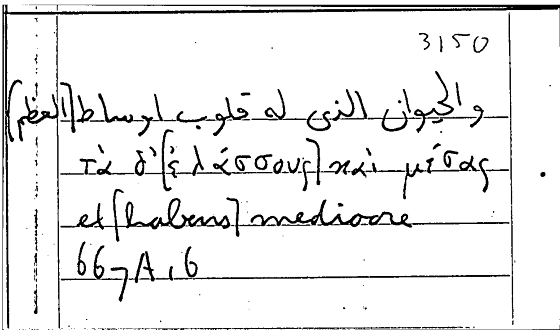 3150
والحيوان الذى له قلوب اوساط [العظم]
τὰ δ’[ἐλάσσους] καὶ μέσας
et [habens] mediocre
667A,6